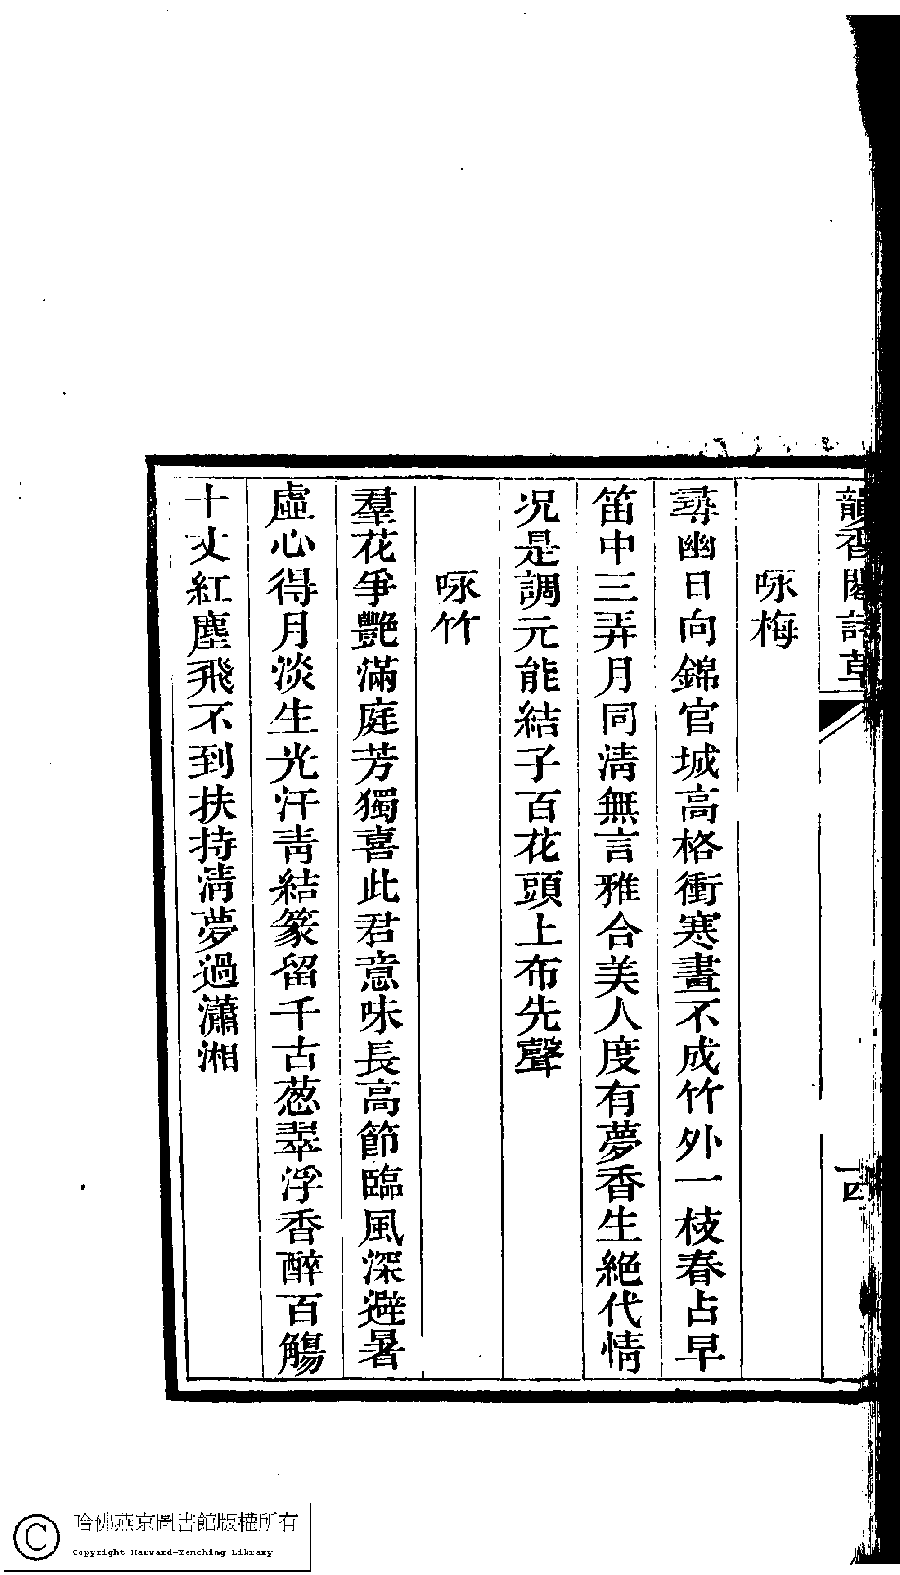 韻香閣詩草
咏梅
尋幽日向錦官城高格衝寒畫不成竹外一枝春占早
笛中三弄月同清無言雅合美人度有夢香生絕代情
況是調元能結子百花頭上布先聲
咏竹
羣花爭艷滿庭芳獨喜此君意味長高節臨風深避暑
虛心得月淡生光汗靑結篆留千古葱翠浮香醉百觴
十丈紅塵飛不到扶持清夢過瀟湘
哈佛燕京圖書館版權所有
Copyright Harvard-Yenching Library